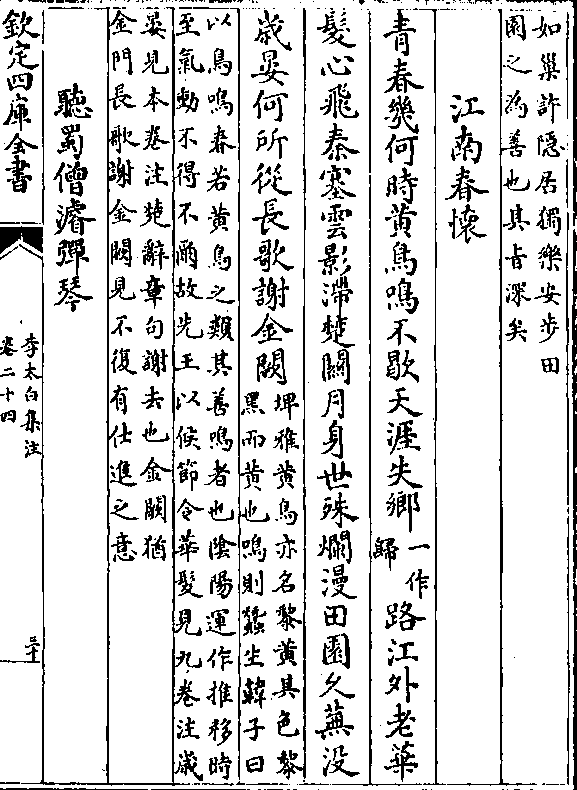 如巢許隱居獨樂安步田
園之為善也其㫖深矣
江南春懷
青春幾何時黄鳥鳴不歇天涯失鄉一作歸路江外老華
髮心飛秦塞雲影滯楚關月身世殊爛漫田園久蕪没
歳晏何所從長歌謝金闕埤雅黄鳥亦名黎黄其色黎
黑而黄也鳴則蠶生韓子曰
以鳥鳴春若黄鳥之類其善鳴者也隂陽運作推移時
至氣動不得不爾故先王以候節令華髮見九卷注歳
晏見本卷注楚辭章句謝去也金闕猶
金門長歌謝金闕見不復有仕進之意
聽蜀僧濬彈琴
欽定四庫全書
李太白集注
卷二十四
三十